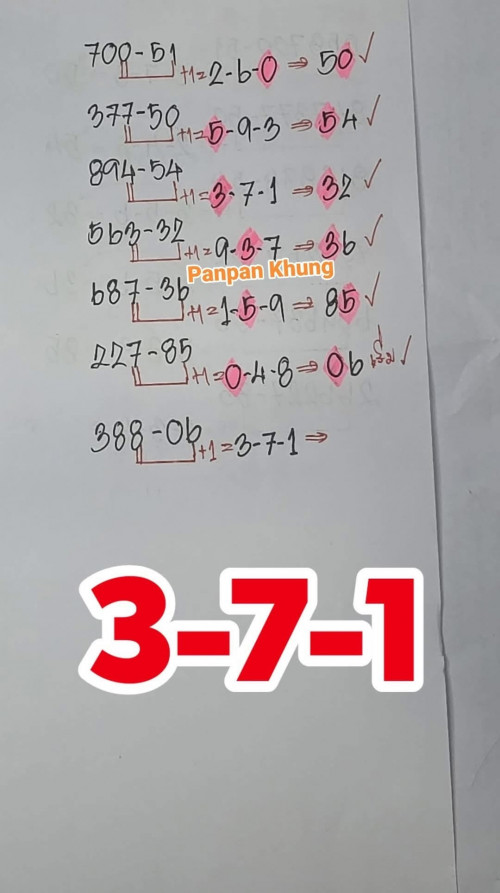 700-51 +1=2-6-0 ⇒ 50 ✓
377-50 +1=5-9-3 ⇒ 54 ✓
894-54 +1=3-7-1 ⇒ 32 ✓
563-32 +1=9-3-7 ⇒ 36 ✓
Panpan Khung
687-36 +1=1-5-9 ⇒ 85 ✓
227-85 +1=0-4-8 ⇒ 06 ✓
388-06 +1=3-7-1 ⇒
3-7-1